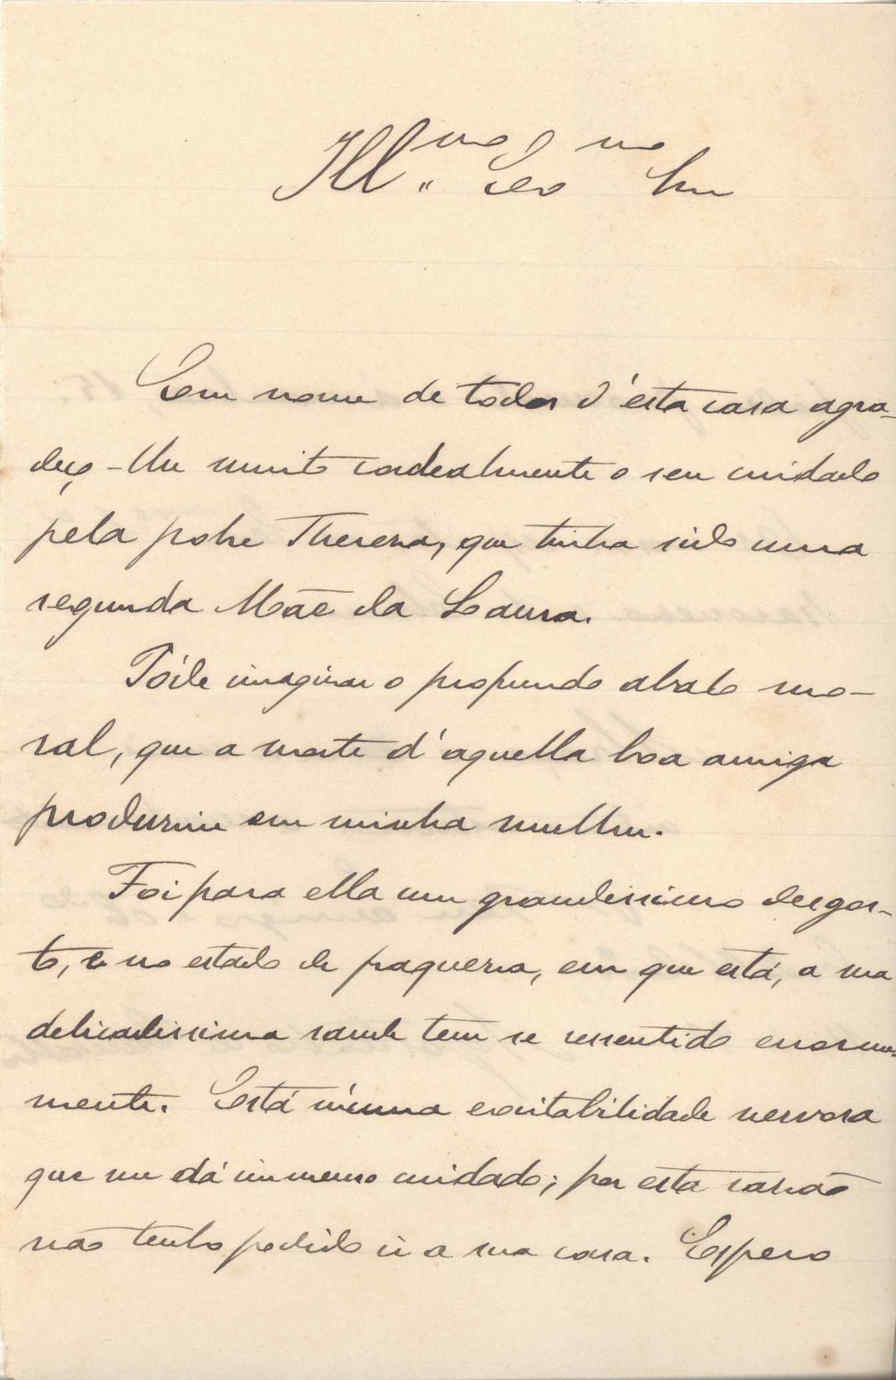 Ill.mo Exmo Snr
Em nome de todos d'esta casa agra-
deço-lhe muito cordealmente o seu cuidado
pela pobre Thereza, que tinha sido uma
segunda Mãe da Laura.
Póde imaginar o profundo abalo mo-
ral, que a morte d'aquella boa amiga
produziu em minha mulher.
Foi para ella um grandissimo desgos-
to, e no estado de fraqueza, em que está, a sua
delicadissima saude tem se resentido enorme-
mente. Está n'uma excitabilidade nervosa
que me dá immenso cuidado; por esta razão
não tenho podido ir a sua casa. Espero